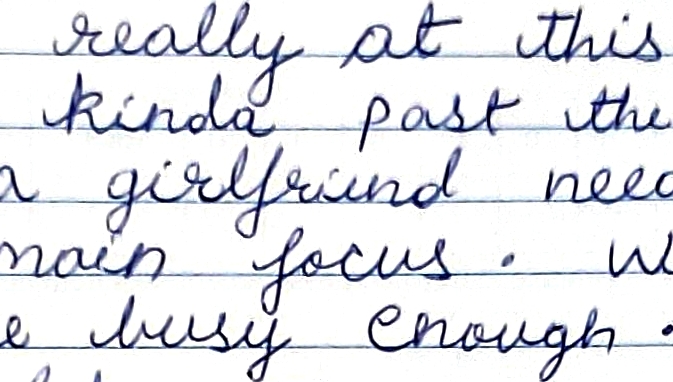 really at this
kinda past the
a girlfriend need
main focus. w
e busy enough.